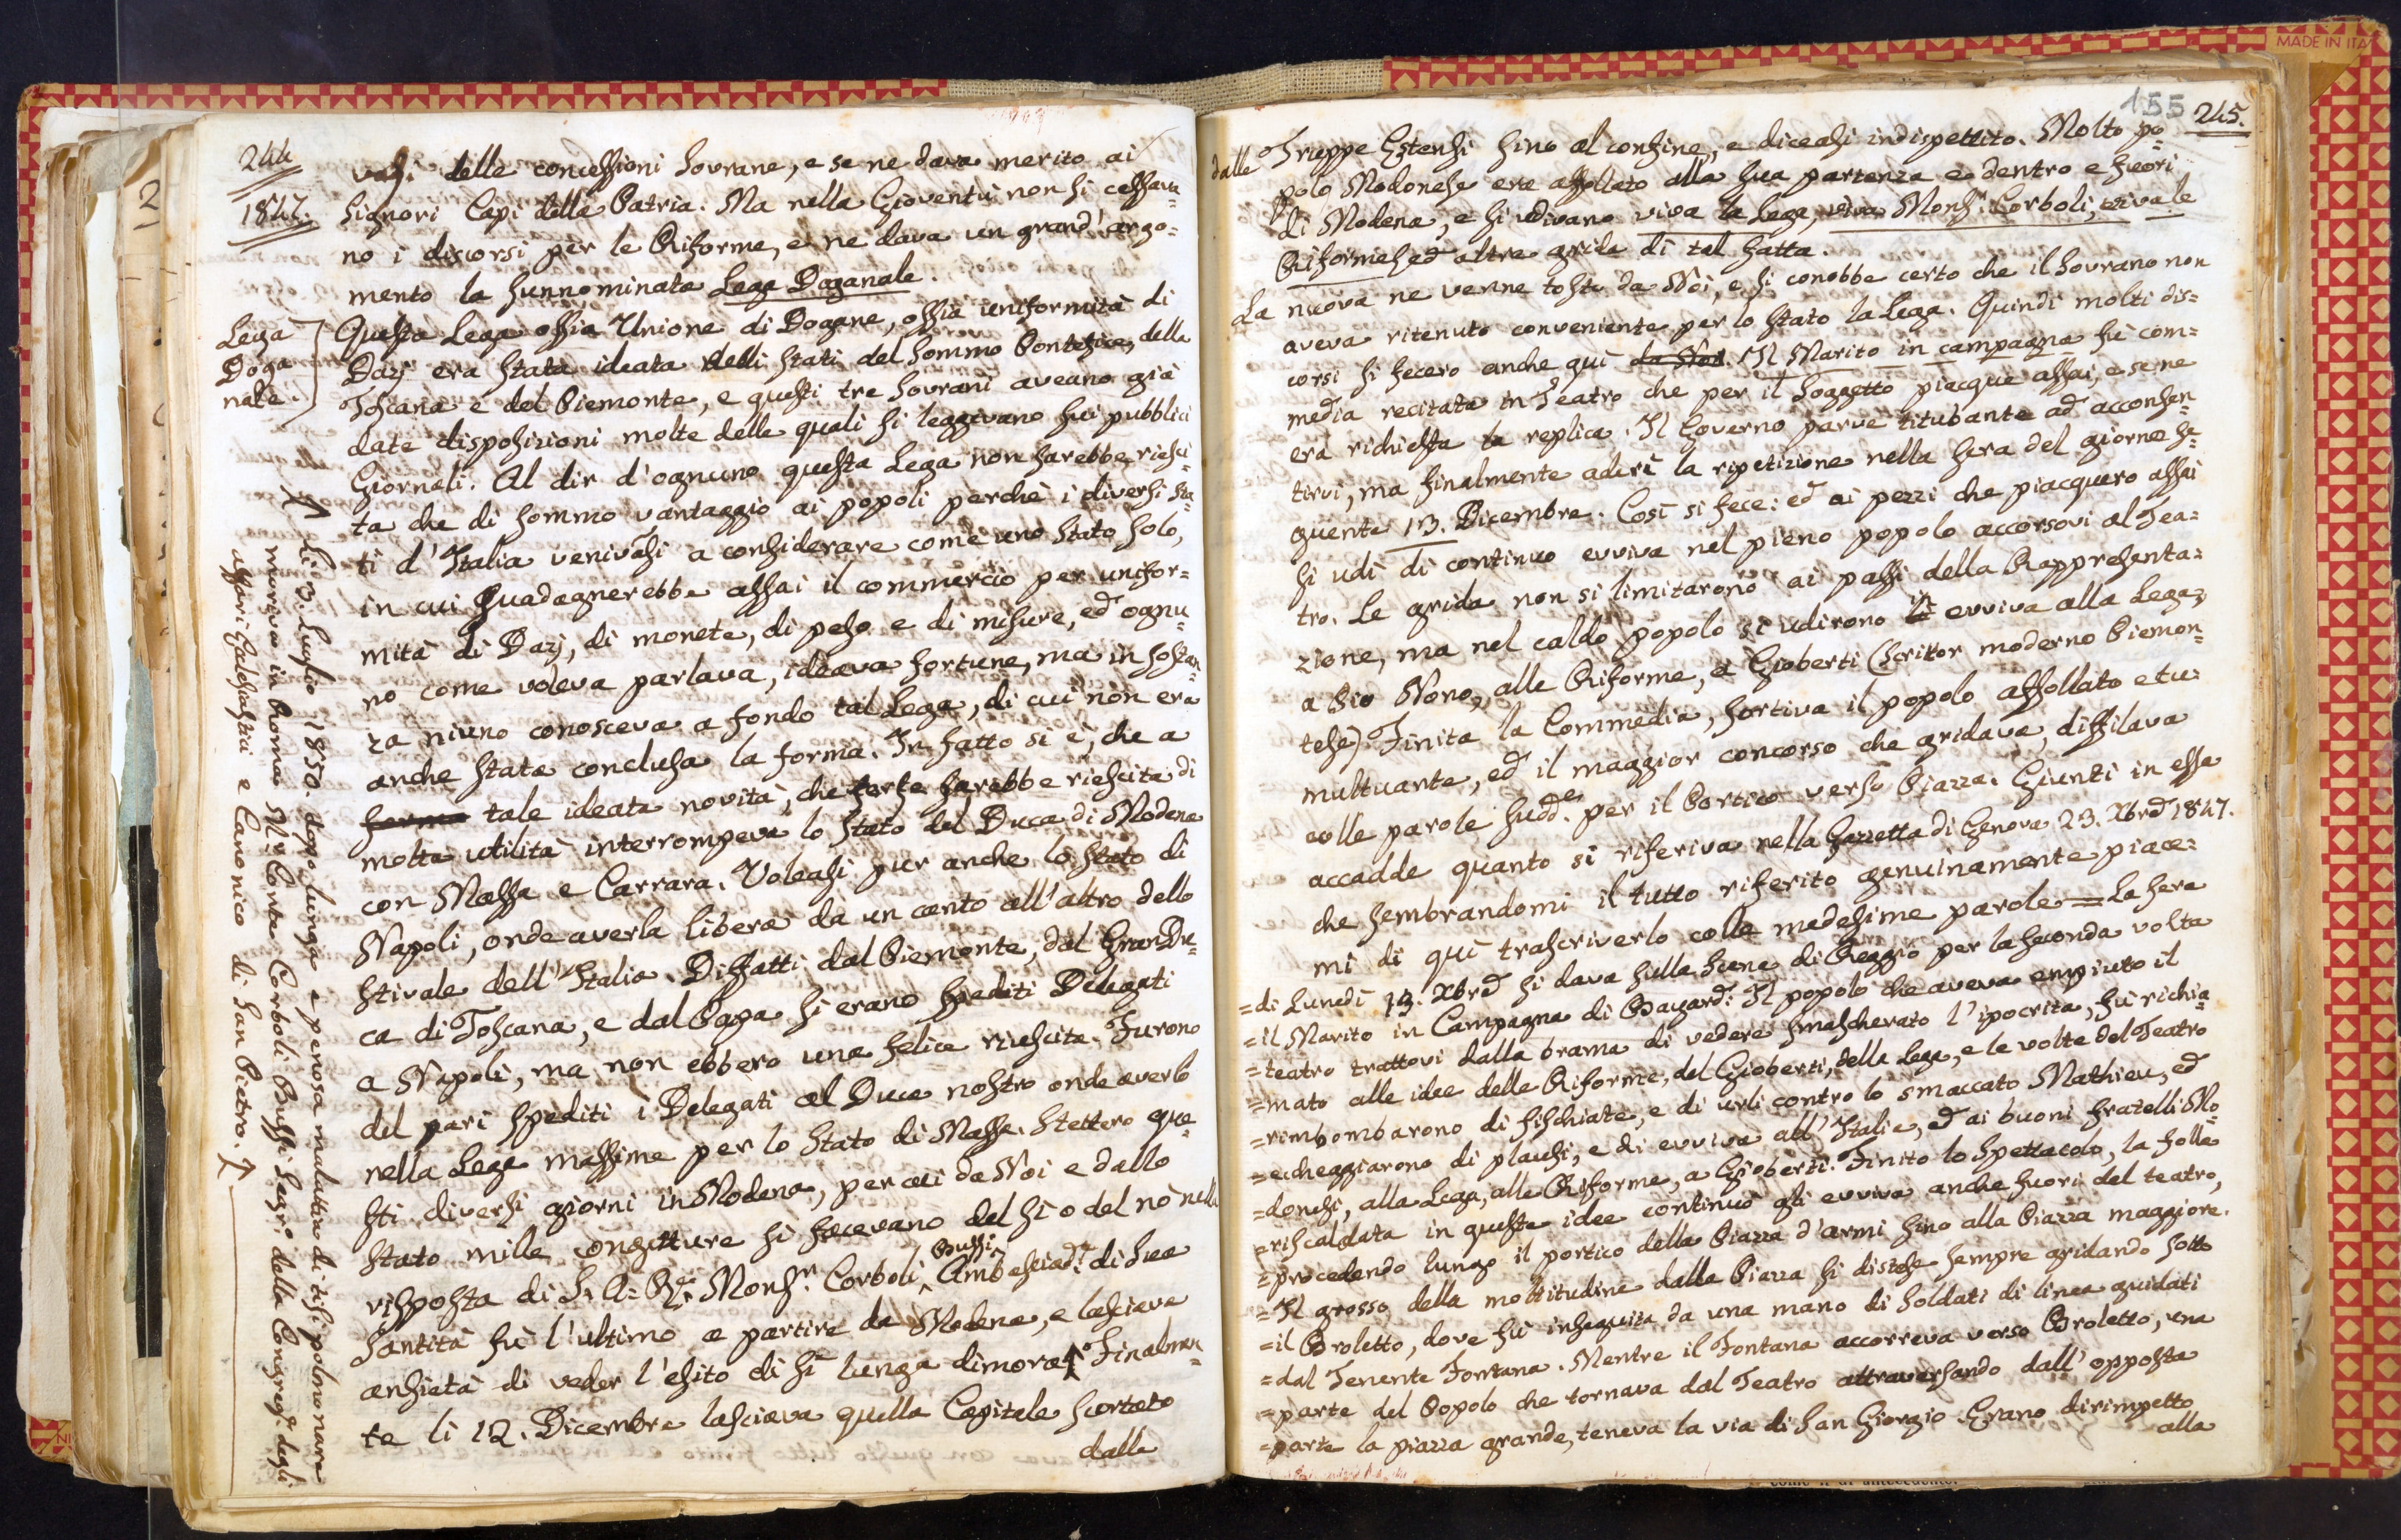 244
1847.
vasi delle concessioni Sovrane, e se ne dava merito ai
Signori Capi della Patria. Ma nella Gioventù non si cessava=
no i discorsi per le Riforme, e ne dava un grand'argo=
mento la sunnominata Lega Doganale.
Lega
Doga
nale.
Questa Lega ossia Unione di Dogane, ossia uniformità di
Dazj era stata ideata delli Stati del Sommo Pontefice, della
Toscana e del Piemonte, e questi tre Sovrani aveano già
date disposizioni molte delle quali si leggevano sui pubblici
Giornali. Al dir d'ognuno questa Lega non sarebbe riesci=
ta che di sommo vantaggio ai popoli perchè i diversi Sta=
ti d'Italia venivasi a considerare come uno Stato solo,
in cui guadagnerebbe assai il commercio per unifor=
mità di Dazj, di monete, di peso e di misure, ed ognu=
no come voleva parlava, ideava fortune, ma in sostan=
za niuno conosceva a fondo tal Lega, di cui non era
anche stata conclusa la forma. In fatto si è, che a
forma tale ideata novità, che forse sarebbe riescita di
molta utilità interrompeva lo Stato del Duca di Modena
con Massa e Carrara. Voleasi pur anche lo Stato di
Napoli, onde averla libera da un canto all'altro dello
Stivale dell'Italia. Diffatti dal Piemonte, dal GranDu=
ca di Toscana, e dal Papa si erano spediti Delegati
a Napoli, ma non ebbero una felice riuscita. Furono
del pari spediti i Delegati al Duca nostro onde averlo
nella Lega massime per lo Stato di Massa. Stettero que=
sti diversi giorni in Modena, per cui da Noi e dallo
Stato mille congetture si facevano del sì o del nò nella
risposta di S. A. R. Monsr. Corboli Bussi Ambasciad.e di Sua
Santità fù l'ultimo a partire da Modena, e lasciava
ansietà di veder l'esito di sì lunga dimora. Finalmen=
te li 12. Dicembre lasciava quella Capitale scortato
dalle
Li 3. Luglio 1850. dopo lunga e penosa malattia di tisi polmonare
moriva in Roma Mr. Conte Corboli Bussi Segr.o della Congreg.e degli
affari Eclesiastici e Canonico di San Pietro.
155
245.
dalle Truppe Estensi sino al confine, e diceasi indispettito. Molto po=
polo Modonese era affollato alla sua partenza e dentro e fuori
di Modena, e si udivano viva la Lega, viva Monsr. Corboli, viva le
Riforme, ed altre grida di tal fatta.
La nuova ne venne tosto da Noi, e si conobbe certo che il Sovrano non
aveva ritenuto conveniente per lo Stato la Lega. Quindi molti dis=
corsi si fecero anche quì da Noi. Il Marito in campagna fù com=
media recitata in Teatro che per il soggetto piacque assai, e se ne
era richiesta la replica. Il Governo parve titubante ad acconsen=
tirvi, ma finalmente aderì la ripetizione nella sera del giorno se=
guente 13. Dicembre. Così si fece: ed ai pezzi che piacquero assai
si udì di continuo evviva nel pieno popolo accorsovi al Tea=
tro. Le grida non si limitarono ai passi della Rappresenta=
zione, ma nel caldo popolo si udirono li evviva alla Lega,
a Pio Nono, alle Riforme, a Gioberti (Scrittor moderno Piemon=
tese). Finita la Commedia, sortiva il popolo affollato e tu=
multuante, ed il maggior concorso che gridava, diffilava
colle parole sudd.e per il Portico verso Piazza. Giunti in essa
accadde quanto si riferiva nella Gazzetta di Genova 23. Xbre 1847.
che sembrandomi il tutto riferito genuinamente piace=
mi di quì trascriverlo colle medesime parole = La sera
=di Lunedì 13. Xbre si dava sulla Scena di Reggio per la seconda volta
=il Marito in Campagna di Bayard. Il popolo che aveva empiuto il
=teatro trattovi dalla brama di vedere smascherato l'ipocrita, fù richia=
=mato alle idee delle Riforme, del Gioberti, della Lega, e le volte del Teatro
=rimbombarono di fischiate, e di urli contro lo smaccato Mathieu, ed
=echeggiarono di plausi, e di evviva all'Italia, ed ai buoni fratelli Mo=
=donesi, alla Lega, alle Riforme, a Gioberti. Finito lo Spettacolo, la folla
=riscaldata in queste idee continuò gli evviva anche fuori del teatro,
=procedendo lungo il portico della Piazza d'armi sino alla Piazza maggiore.
=Il grosso della moltitudine dalla Piazza si distese sempre gridando sotto
=il Broletto, dove fù inseguita da una mano di Soldati di linea guidati
=dal Tenente Fontana. Mentre il Fontana accorreva verso Broletto, una
=parte del Popolo che tornava dal Teatro attraversando dall'opposta
=parte la piazza grande, teneva la via di San Giorgio. Erano dirimpetto
alla
MADE IN ITA